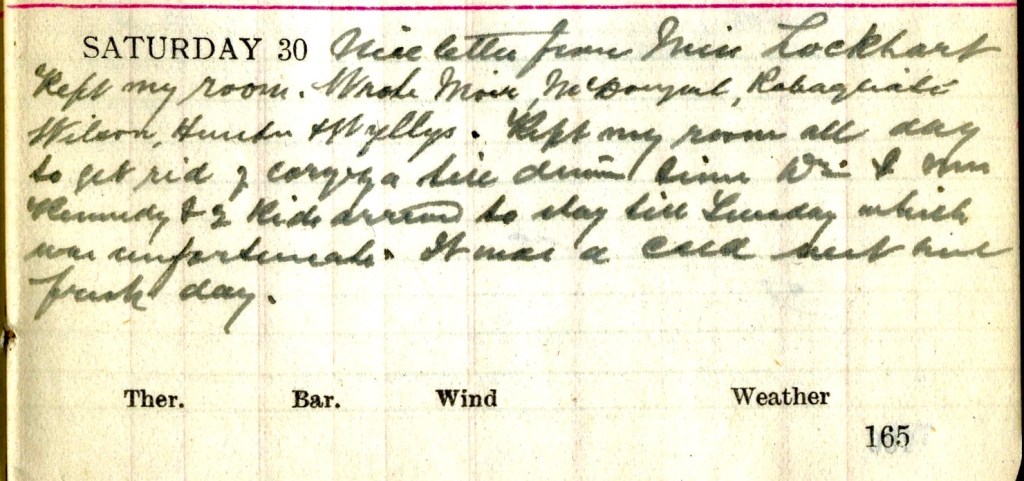 SATURDAY 30 Nice letter from Miss Lockhart
Kept my room. Wrote Moir, McDougal, Rabagliati
Wilson, Hunter & Wyllys. Kept my room all day
to get rid of coryza till dinner time Dr. & Mrs
Kennedy & 2 Kids arrived to stay till Tuesday which
was unfortunate. It was a cold but fine
fresh day.
Ther. Bar. Wind Weather
165